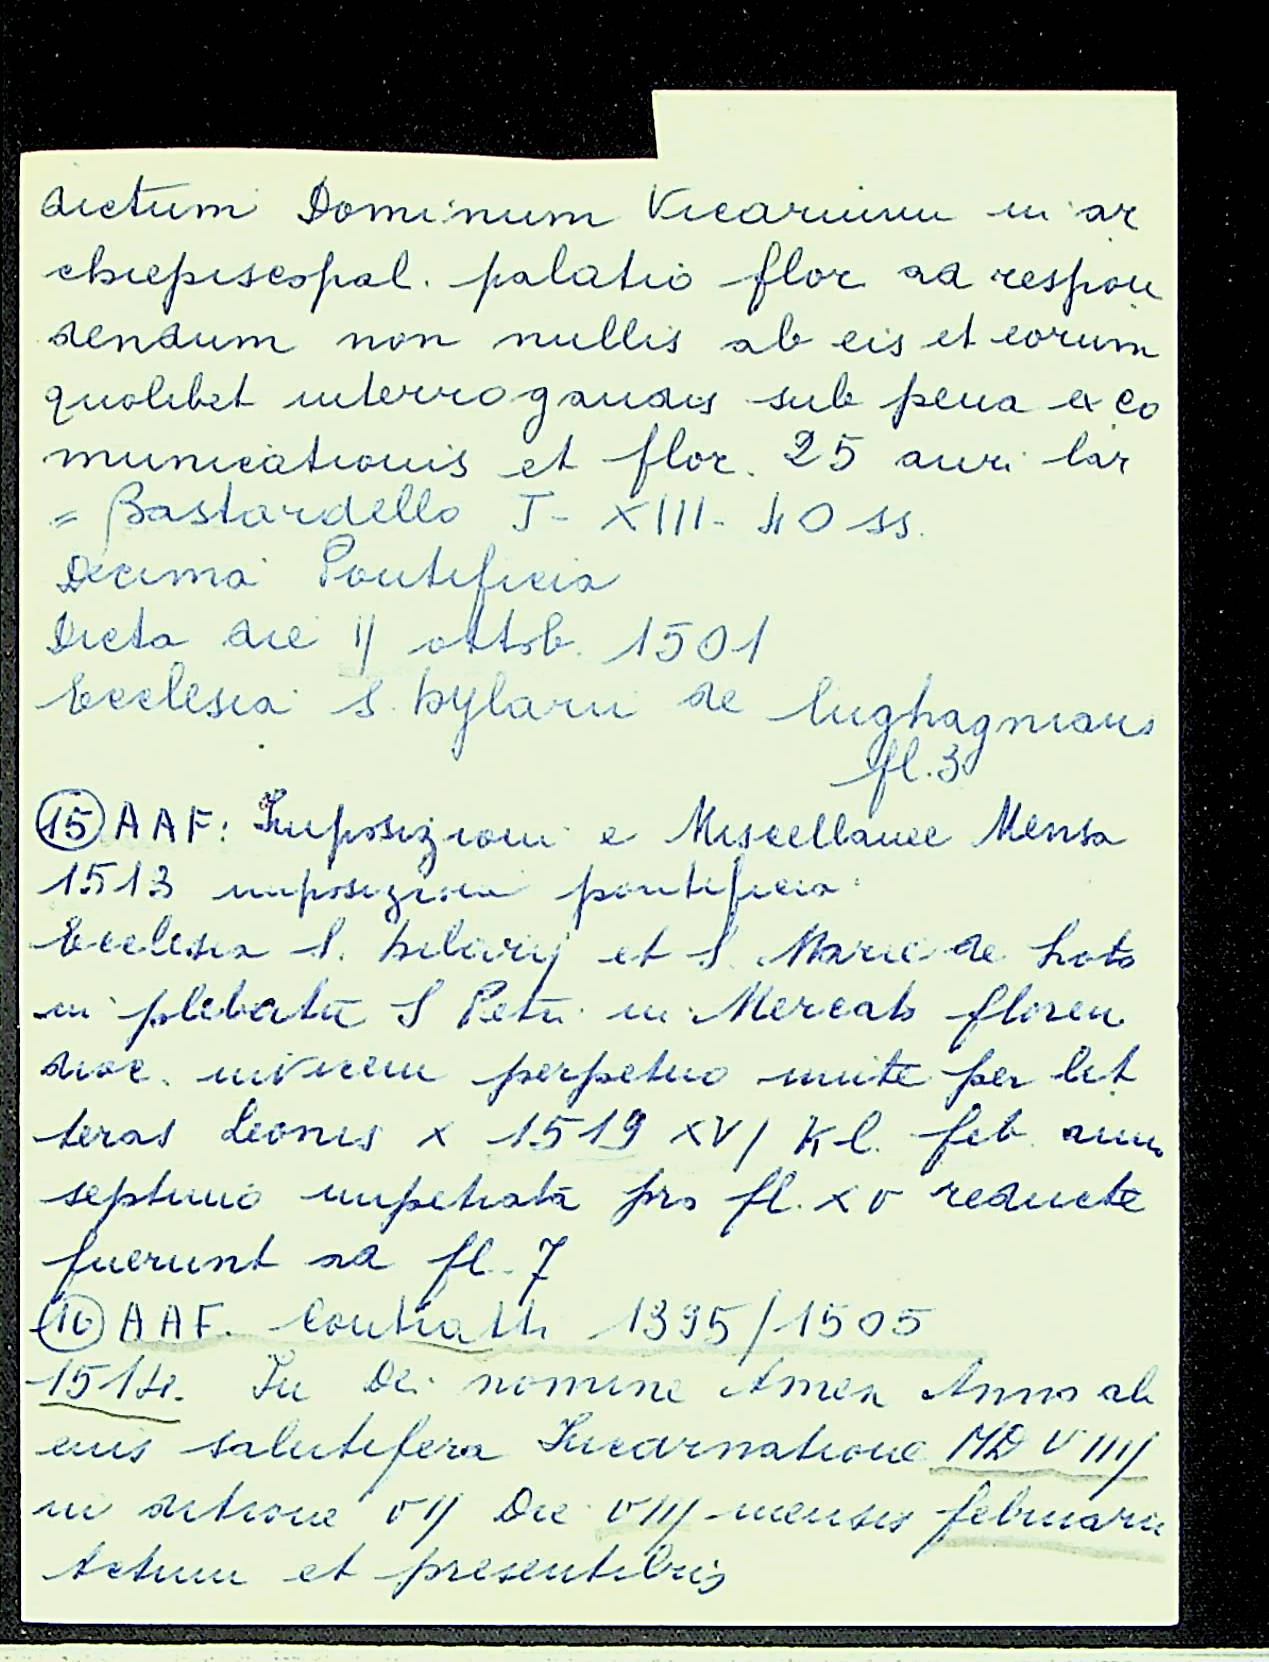 dictum Dominum Vicarium in ar
chiepiscopal. palatio flor ad respon
dendum non nullis ab eis et eorum
quolibet interrogandis sub pena exco
municationis et flor. 25 auri lar
= Bastardello I- XIII- 40 ss.
Decima Pontificia
Dicta die ij ottob. 1501
Ecclesia S. hylarii de lughagnians
fl. 3
(15) AAF: Imposizioni e Miscellanee Mensa
1513 imposizioni pontificia
Ecclesia S. hilarij et S. Marie de Loto
in plebatu S Petri in Mercato floren
dioc. invicem perpetuo unite per lit
teras Leonis X 1519 XVI Kl. feb. anno
septimo impetrata pro fl. XV reducte
fuerunt ad fl. 7
(16) AAF. Contratti 1395/1505
1514. In Dei nomine Amen Anno ab
eius salutifera Incarnatione MDVIIII
in ditione VII Die VIII mensis februarii
Actum et presentibus